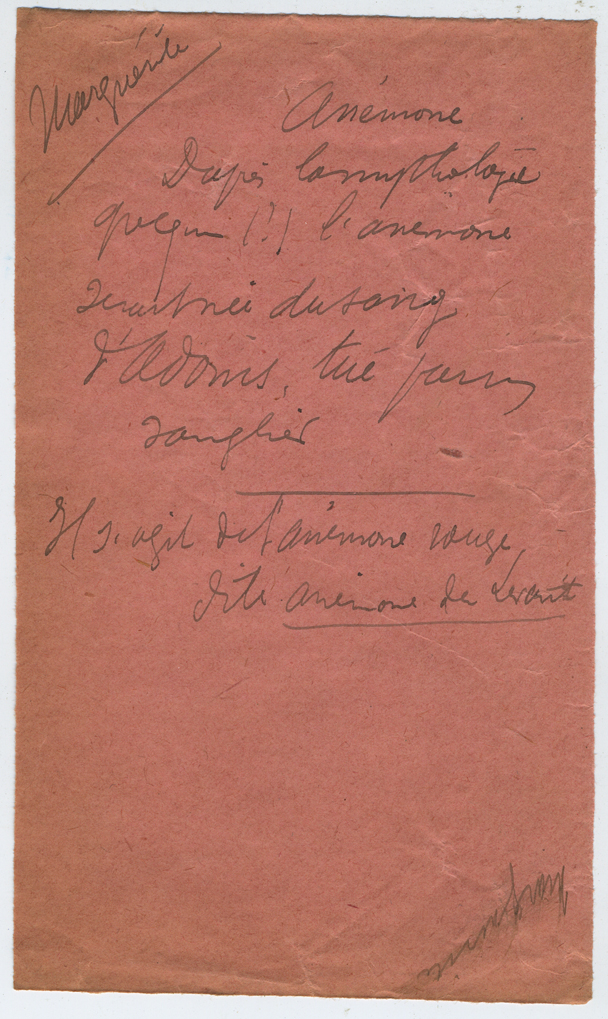 Marguerite
Anémone
D'après la mythologie
grecque (?) l'anémone
serait née du sang
d'Adonis, tué par un
sanglier
Il s'agit de l'anémone rouge,
dite anémone du Levant